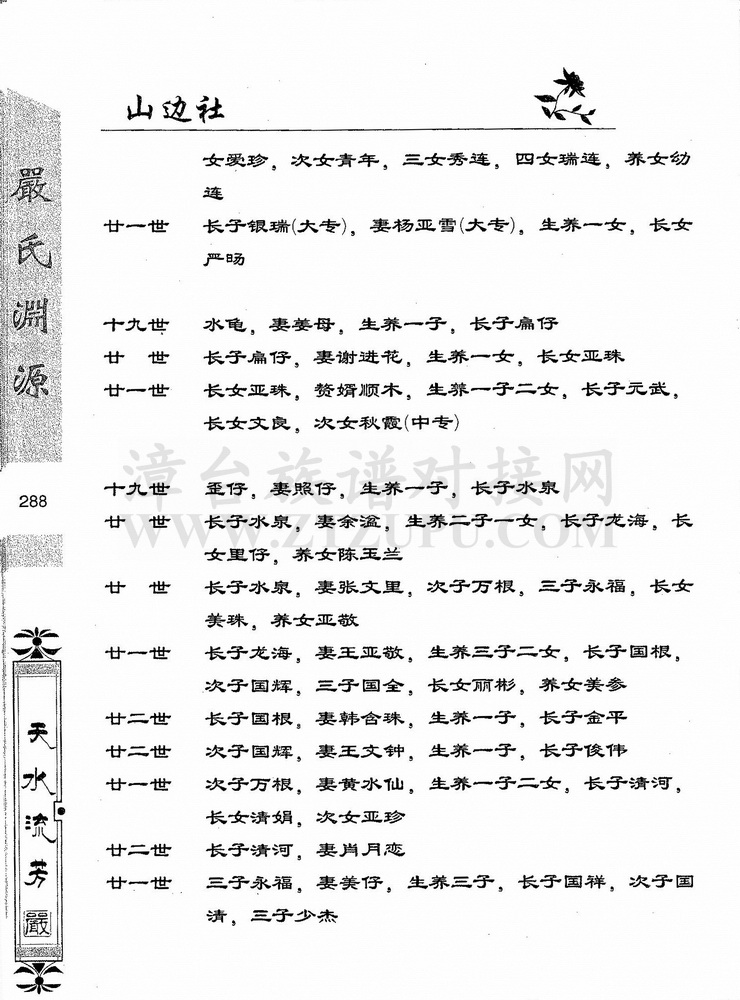 山边社
女爱珍，次女青年，三女秀连，四女瑞连，养女幼
连
廿一世 长子银瑞(大专)，妻杨亚雪(大专)，生养一女，长女
严旸
十九世 水龟，妻姜母，生养一子，长子扁仔
廿 世 长子扁仔，妻谢进花，生养一女，长女亚珠
廿一世 长女亚珠，赘婿顺木，生养一子二女，长子元武，
长女文良，次女秋霞(中专)
十九世 歪仔，妻照仔，生养一子，长子水泉
廿 世 长子水泉，妻余湓，生养二子一女，长子龙海，长
女里仔，养女陈玉兰
廿 世 长子水泉，妻张文里，次子万根，三子永福，长女
美珠，养女亚敬
廿一世 长子龙海，妻王亚敬，生养三子二女，长子国根，
次子国辉，三子国全，长女丽彬，养女美参
廿二世 长子国根，妻韩含珠，生养一子，长子金平
廿二世 次子国辉，妻王文钟，生养一子，长子俊伟
廿一世 次子万根，妻黄水仙，生养一子二女，长子清河，
长女清娟，次女亚珍
廿二世 长子清河，妻肖月恋
廿一世 三子永福，妻美仔，生养三子，长子国祥，次子国
清，三子少杰
嚴氏淵源
288
天水流芳
嚴
漳台族谱对接网
WWW.ZTZUPU.COM